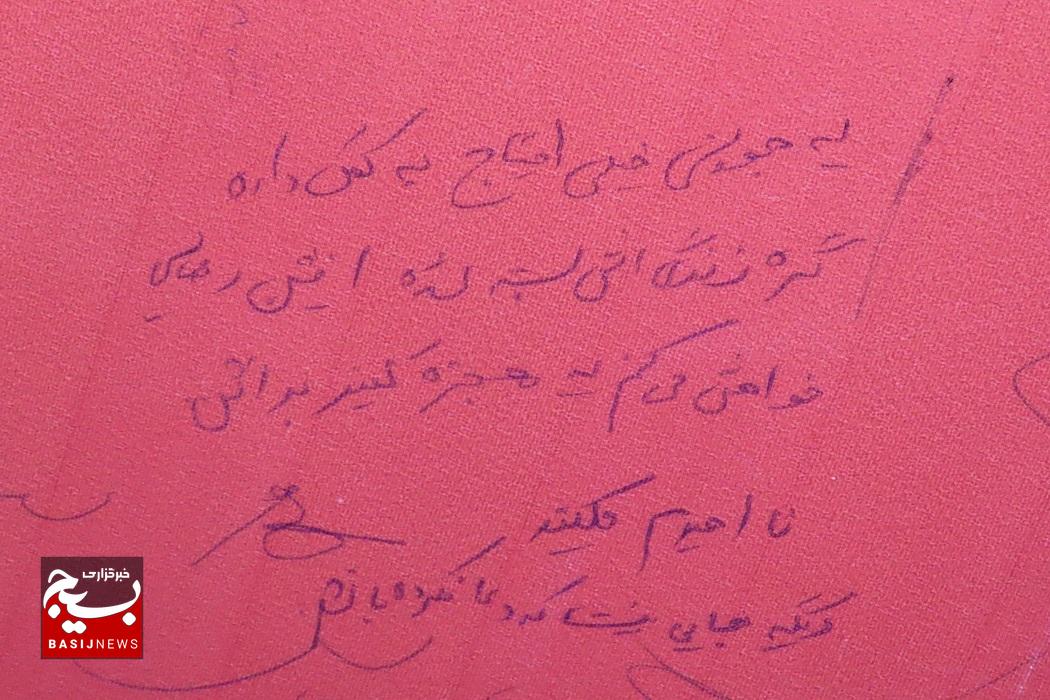 یه جوونی خیلی احتیاج به کمک داره
گره زندگی اش بسته شده
خواهش می کنم یه معجزه کنید براش
نا امیدم نکنید
دیگه جایی نیست که دعا نکرده باشم
خبرگزاری
بسیج
BASIJNEWS